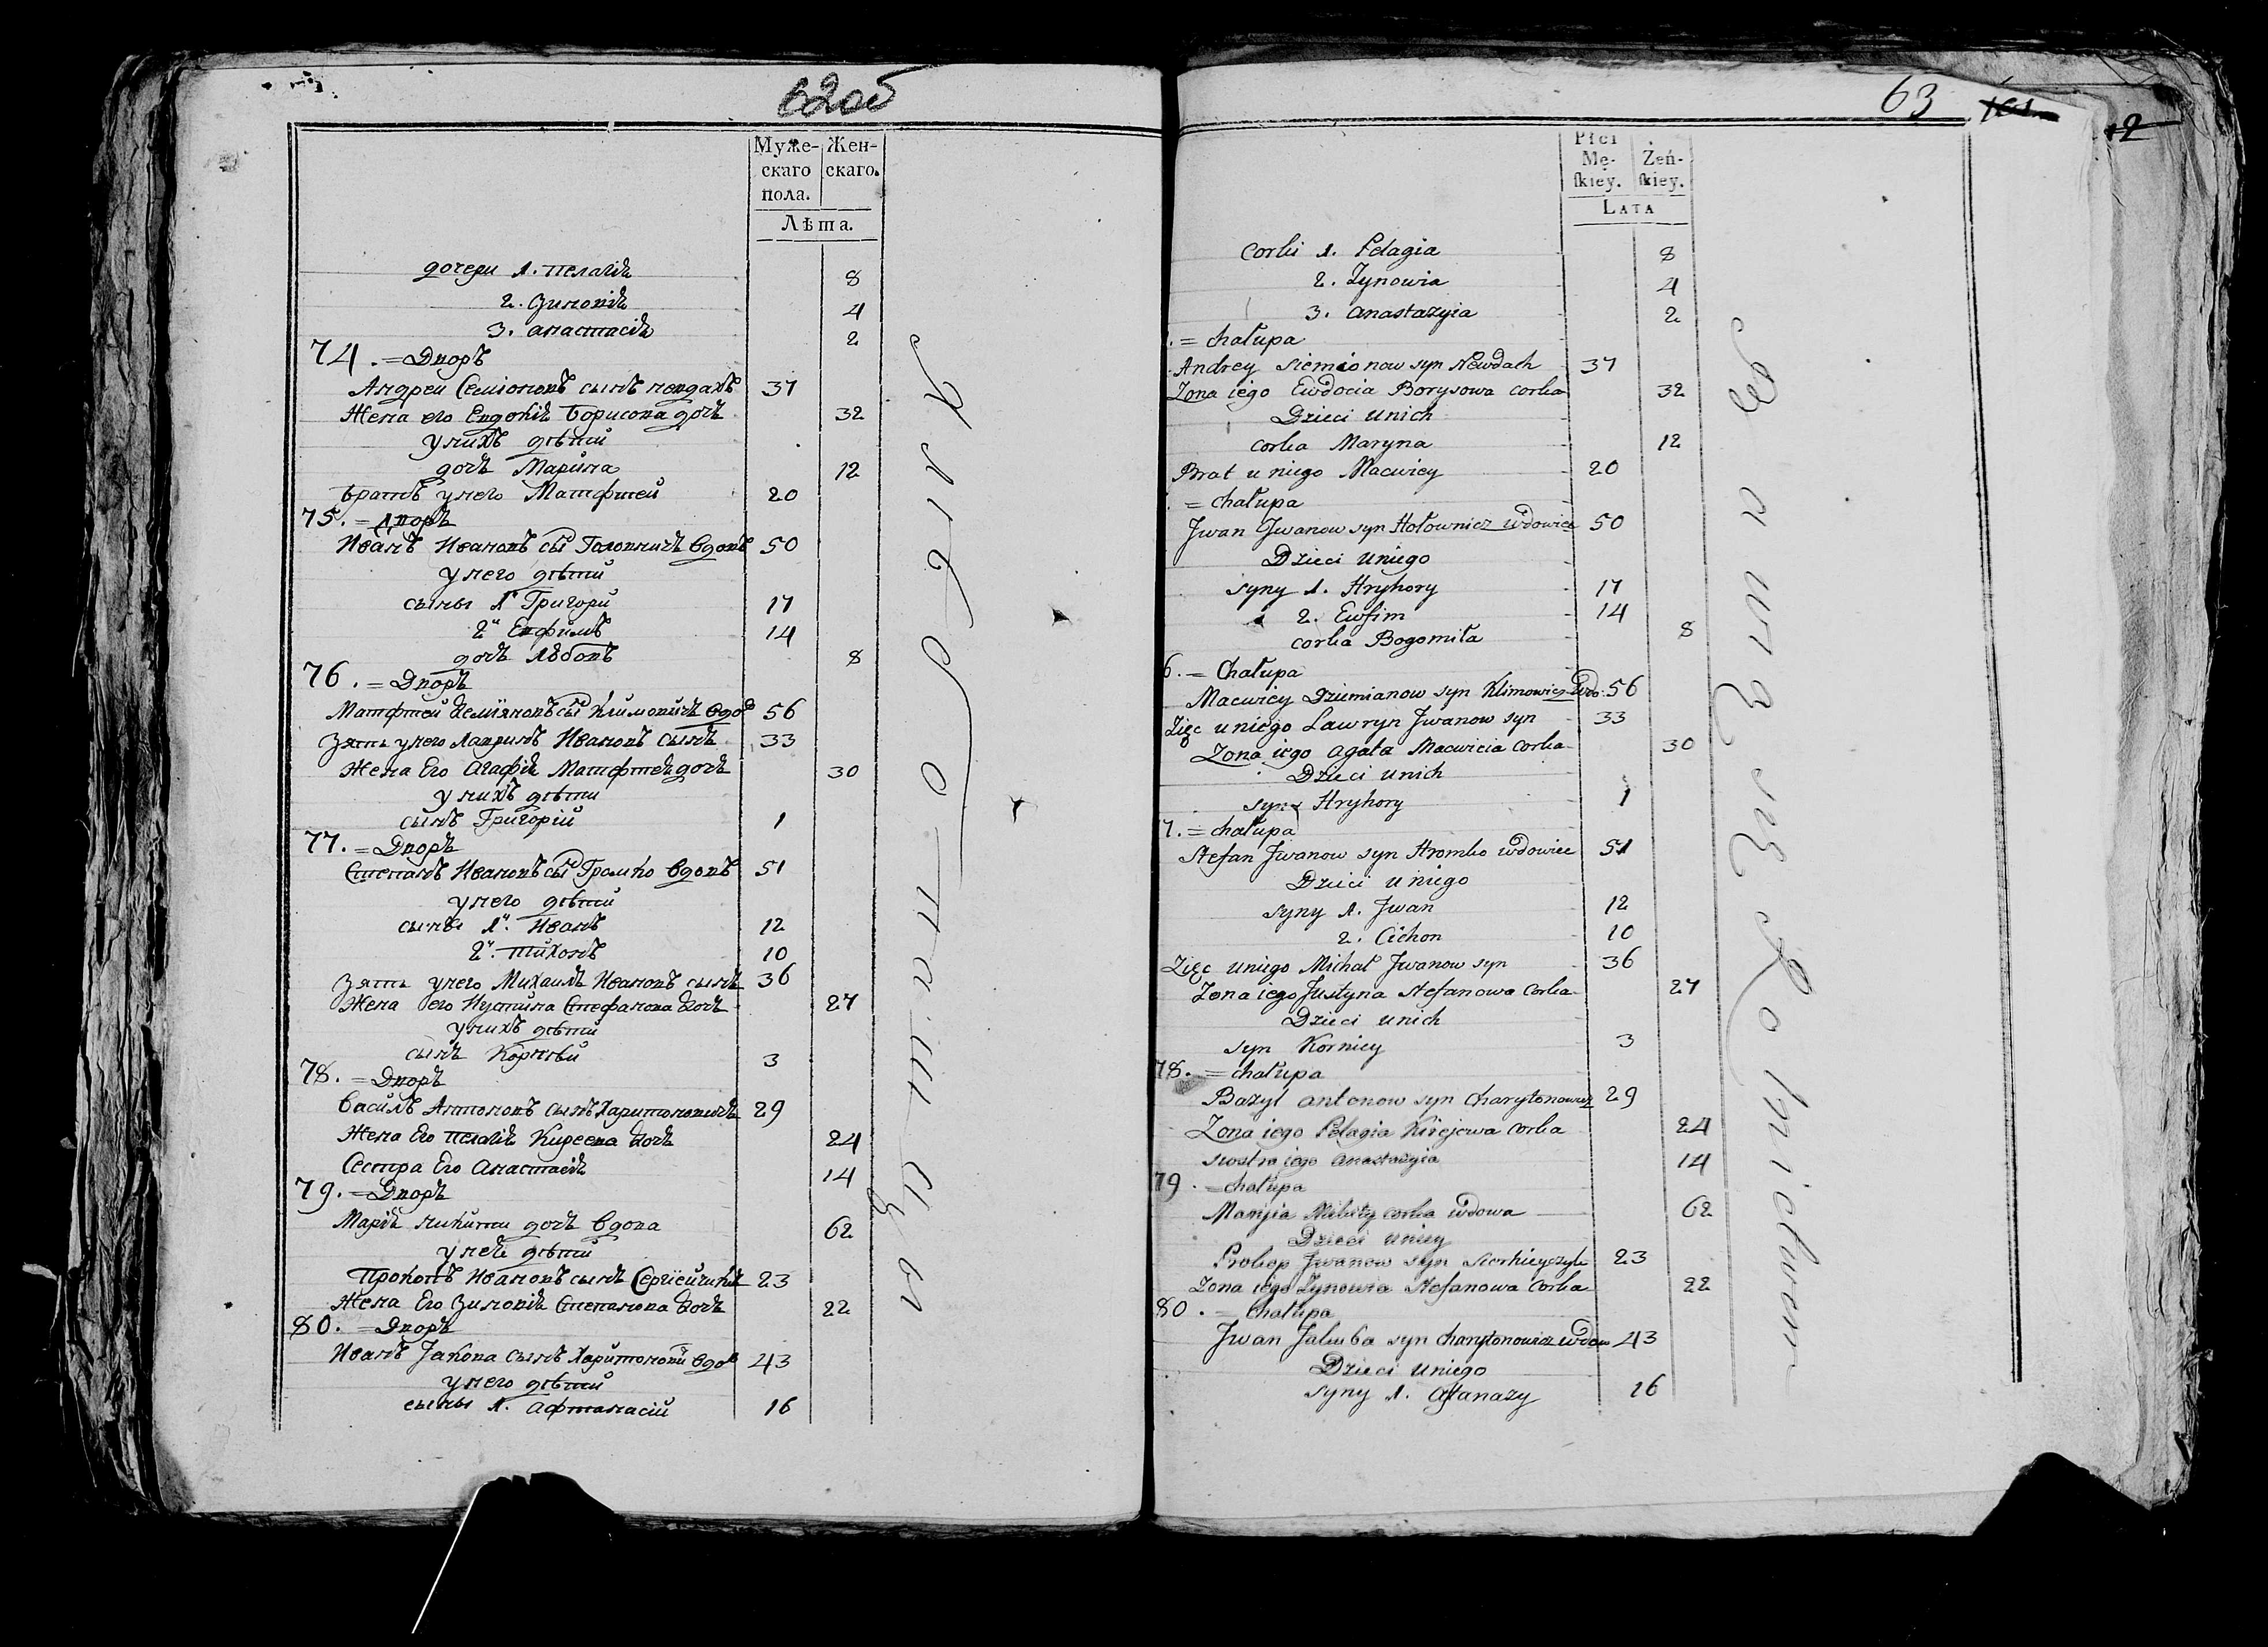 62об
Муже-
скаго
пола.
Жен-
скаго.
Лѣта.
дочери 1. Пелагія 8
2. Зиновія 4
3. Анастасія 2
74. = Дворъ
Андрей Семіоновъ сынъ Невдахъ 37
Жена его Евдокія Борисова дочь 32
у нихъ дѣти
дочь Марина 12
братъ у него Матфтей 20
75. = Дворъ
Иванъ Ивановъ сы Головничъ вдовъ 50
у него дѣти
сыны 1й Григори 17
2й Евфимъ 14
дочь Любовь 8
76. = Дворъ
Матфтей Деміяновъ сы Климовичъ вдов 56
Зять у него Лавринъ Ивановъ сынъ 33
Жена его Агафія Матфтея дочь 30
у нихъ дѣти
сынъ Григорій 1
77. = Дворъ
Степанъ Ивановъ сы Громко вдовъ 51
у него дѣти
сыны 1й. Иванъ 12
2й. Тихонъ 10
Зять у него Михаилъ Ивановъ сынъ 36
Жена его Иустина Стефанова дочь 27
у нихъ дѣти
сынъ Корнѣй 3
78. = Дворъ
Василь Антоновъ сынъ Харитоновичъ 29
Жена его Пелагія Киреева дочь 24
Сестра его Анастасія 14
79. = Дворъ
Марія Никиты дочь вдова 62
у ней дѣти
Прокопъ Ивановъ сынъ Сергіейчикъ 23
Жена его Зиновія Степанова дочь 22
80. = Дворъ
Иванъ Јакова сынъ Харитонови вдов 43
у него дѣти
сыны 1. Афтанасій 16
63
Płci
Mę-
skiey.
Żeń-
skiey.
Lata
corki 1. Pelagia 8
2. Zynowia 4
3. Anastazyia 2
. = chałupa
Andrey Siemionow syn Newdach 37
Zona iego Ewdocia Borysowa corka 32
Dzieci unich
corka Maryna 12
Brat u niego Maciwiey 20
= chałupa
Jwan Jwanow syn Hołownicz wdowiec 50
Dzieci uniego
syny 1. Hryhory 17
2. Ewfim 14
corka Bogomiła 8
6. = Chałupa
Maciwiey Dziemianow syn Klimowicz wdo: 56
Zięc uniego Lawryn Jwanow syn 33
Zona iego Agata Maciwieia corka 30
Dzieci unich
syn Hryhory 1
7. = chałupa
Stefan Jwanow syn Hromko wdowiec 51
Dzieci uniego
syny 1. Jwan 12
2. Cichon 10
Zięc uniego Michał Jwanow syn 36
Zona iego Justyna Stefanowa corka 27
Dzieci unich
syn Korniey 3
78. = chałupa
Bazyl Antonow syn Charytonowicz 29
Zona iego Pelagia Kirejewa corka 24
siostra iego Anastazyia 14
79. = chałupa
Maryia Nikity corka wdowa 62
Dzieci uniey
Prokop Jwanow syn Sierhieyczyk 23
Zona iego Zynowia Stefanowa corka 22
80. = Chałupa
Jwan Jakuba syn Charytonowicz wdow 43
Dzieci uniego
syny 1. Afanazy 16